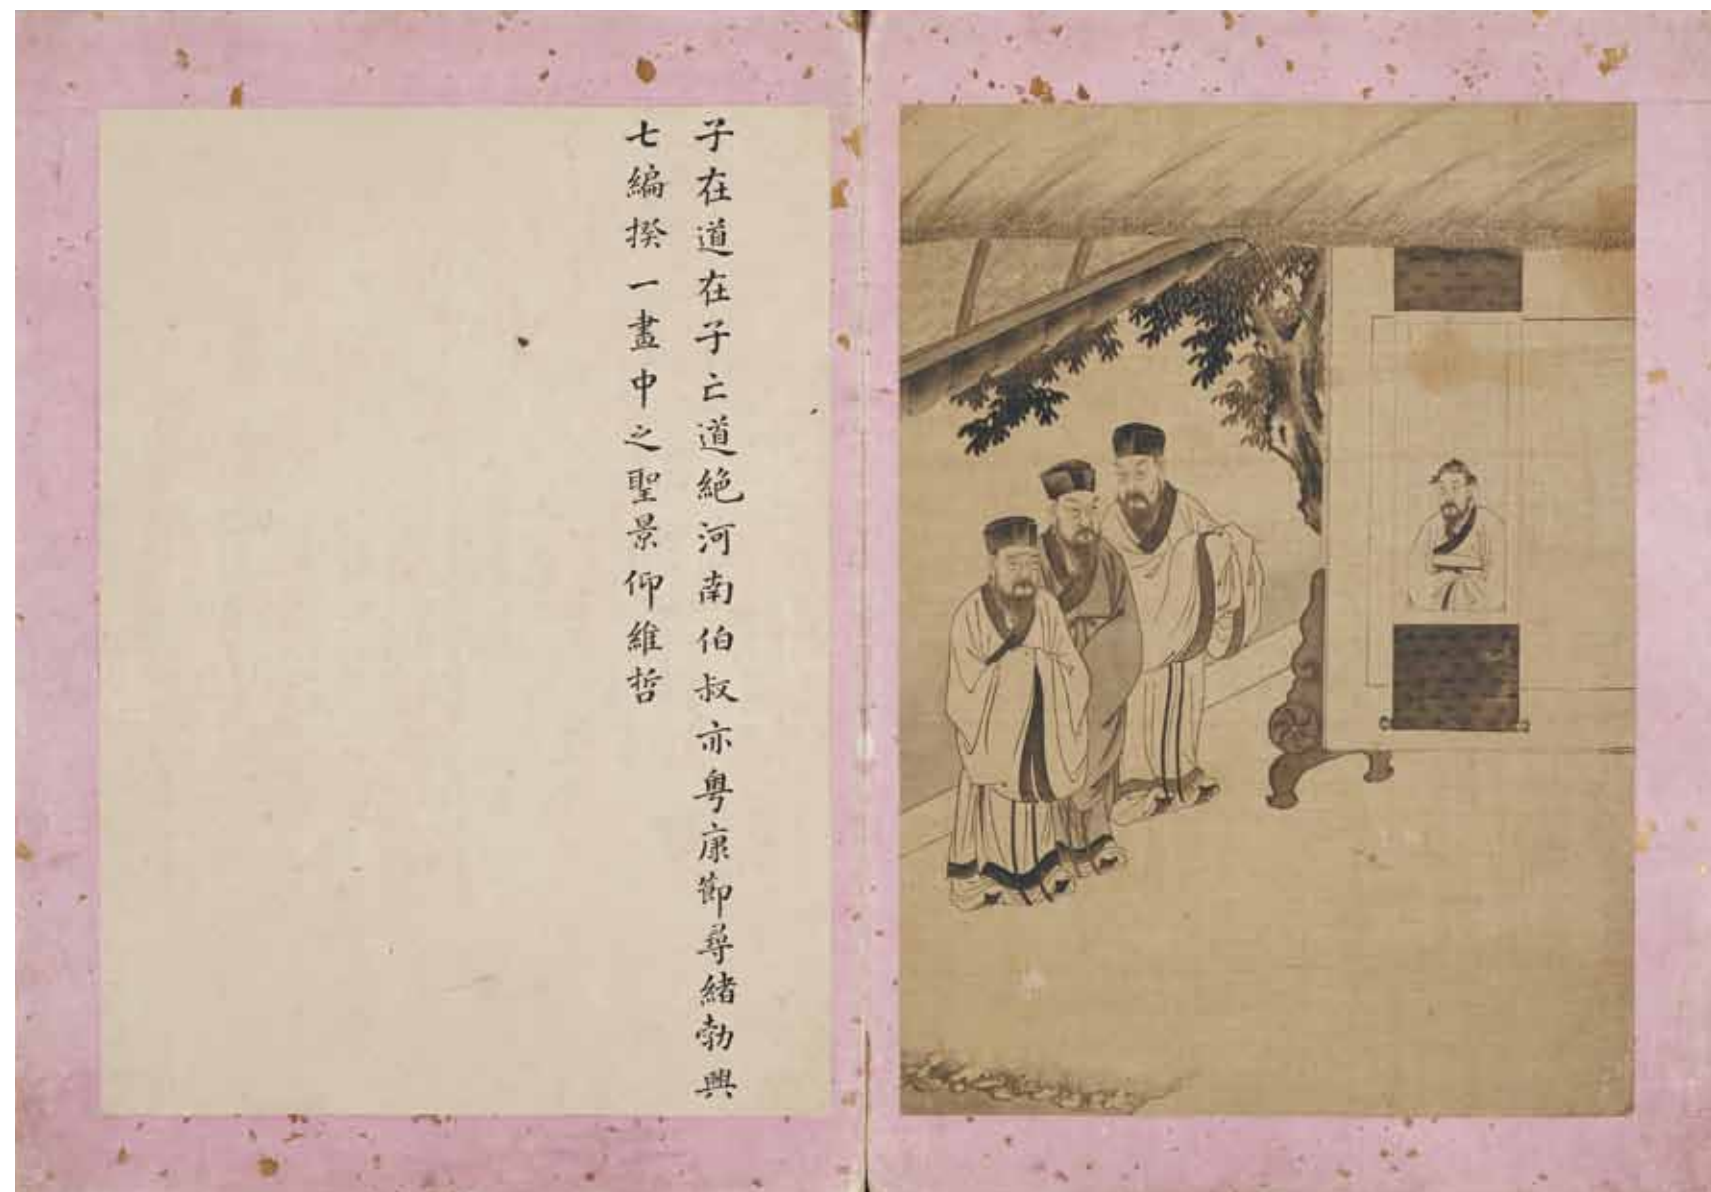 子在道在子亡道絶河南伯叔亦粤康節尋緒勃興
七編揆一畫中之聖景仰維哲